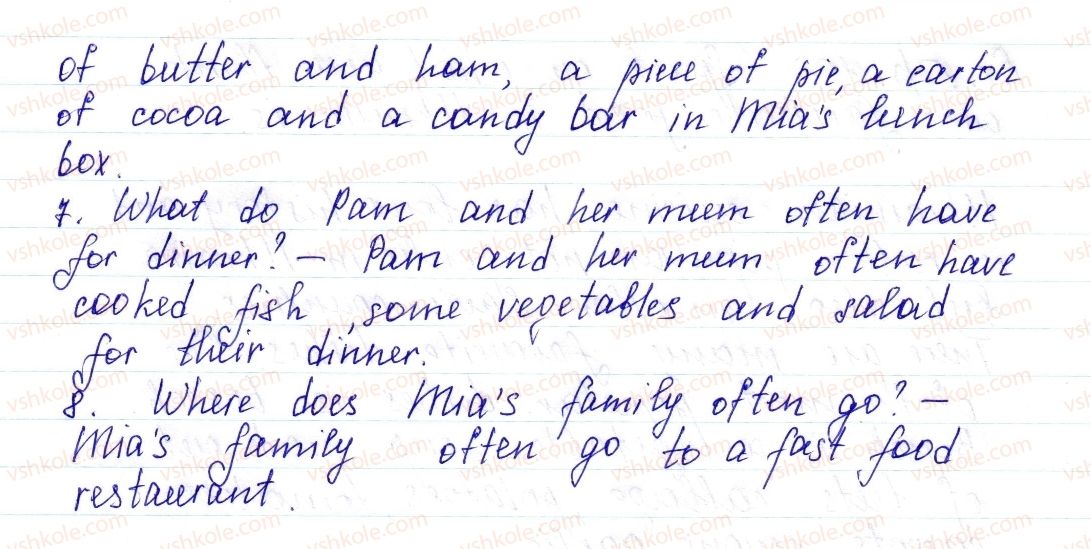 of butter and ham, a piece of pie, a carton
of cocoa and a candy bar in Mia's lunch
box.
7. What do Pam and her mum often have
for dinner? — Pam and her mum often have
cooked fish, some vegetables and salad
for their dinner.
8. Where does Mia's family often go? —
Mia's family often go to a fast food
restaurant.